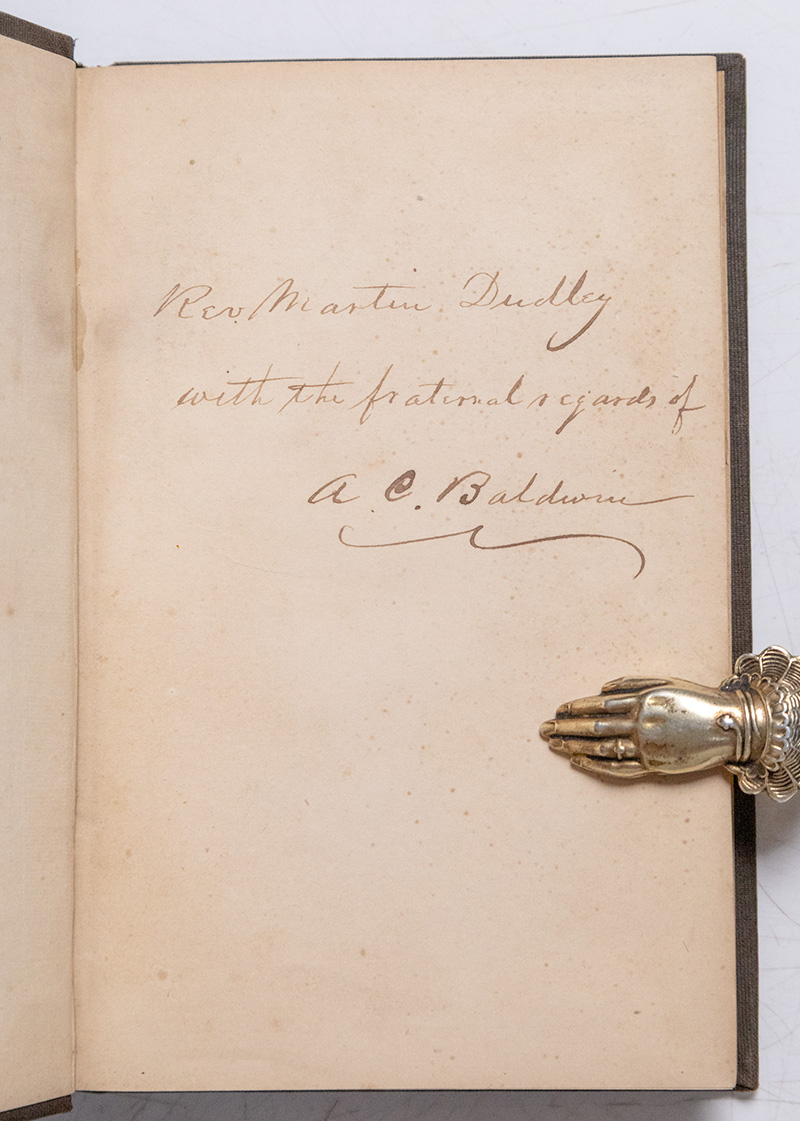 Rev. Martin Dudley
with the fraternal regards of
A. C. Baldwin